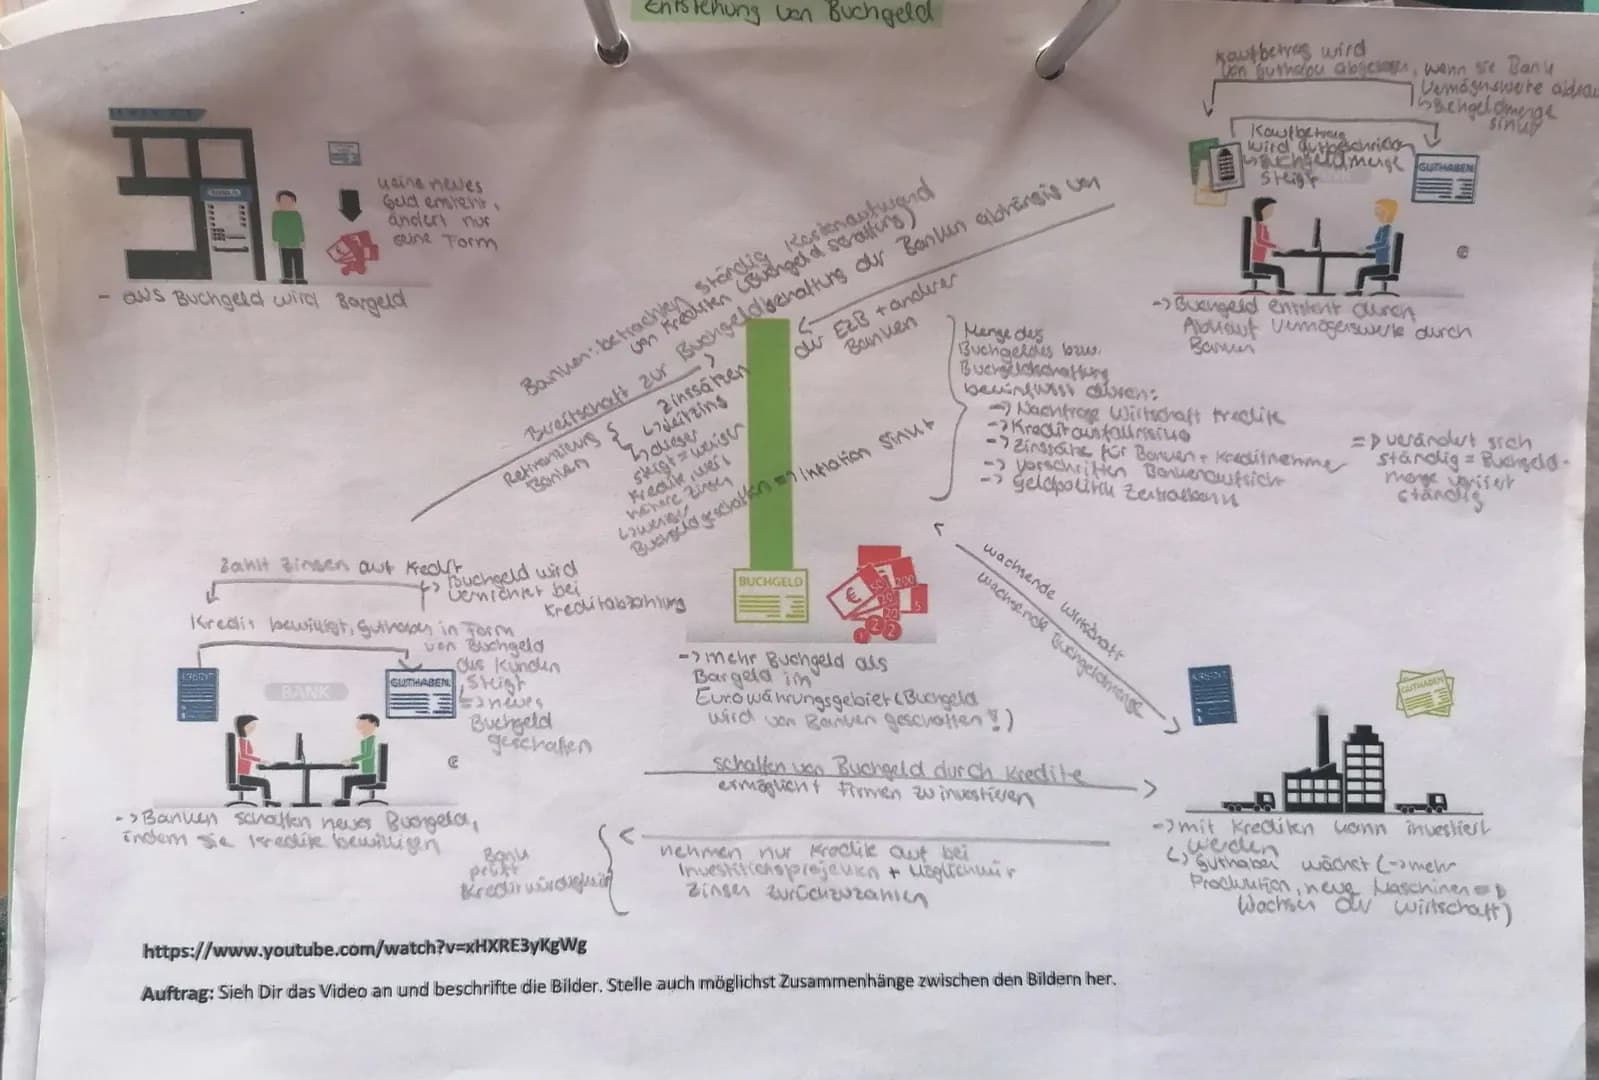 Entstehung von Buchgeld
keine neues
Geld entsteht,
ändert nur
seine Form
- aus Buchgeld wird Bargeld
Kaufbetrag wird
von Guthaben abgezogen, wenn sie Bank
Vermögenswerte
sinkt
Kaufbetrag
wird gutgeschrieben
↳ Buchgeldmenge
steigt
GUTHABEN
-> Buchgeld entsteht durch
Ankauf Vermögenswerte durch
Banken
Banken: betrachten ständig Kostenaufwand
von Krediten (Buchgeld schaffung)
Bereitschaft zur Buchgeldschaffung der Banken abhängig von
der EZB + anderer
Banken
Refinanzierung
Banken
Zinssätzen
↳ Leitzins
↳ dieser
steigt = weniger
Kredite, weil
höhere Zinsen
↳ weniger
Buchgeld geschaffen => Inflation sinkt
Menge des
Buchgeldes bzw.
Buchgeldschaffung
beeinflusst durch:
-> Nachfrage Wirtschaft Kredite
-> Kreditausfallrisiko
-> Zinssätze für Banken + Kreditnehmer
-> Vorschriften Bankenaufsicht
-> Geldpolitik Zentralbank
=> verändert sich
ständig = Buchgeld-
menge variiert
ständig
Zahlt Zinsen auf Kredit
↳ Buchgeld wird
vernichtet bei
Kreditabzahlung
Kredit bewilligt, Guthaben in Form
von Buchgeld
des Kunden
steigt
↳ neues
Buchgeld
geschaffen
KREDIT
BANK
GUTHABEN
-> Banken schaffen neues Buchgeld,
indem sie Kredite bewilligen
BUCHGELD
-> mehr Buchgeld als
Bargeld im
Eurowährungsgebiet (Buchgeld
wird von Banken geschaffen!)
wachsende Wirtschaft
wachsende Buchgeldmenge
schaffen von Buchgeld durch Kredite
ermöglicht Firmen zu investieren
nehmen nur Kredite auf bei
Investitionsprojekten + Möglichkeit
Zinsen zurückzuzahlen
Bank
prüft
Kreditwürdigkeit
KREDIT
GUTHABEN
-> mit Krediten kann investiert
werden
↳ Guthaben wächst (-> mehr
Produktion, neue Maschinen =>
Wachsen der Wirtschaft)
https://www.youtube.com/watch?v=xHXRE3yKgWg
Auftrag: Sieh Dir das Video an und beschrifte die Bilder. Stelle auch möglichst Zusammenhänge zwischen den Bildern her.